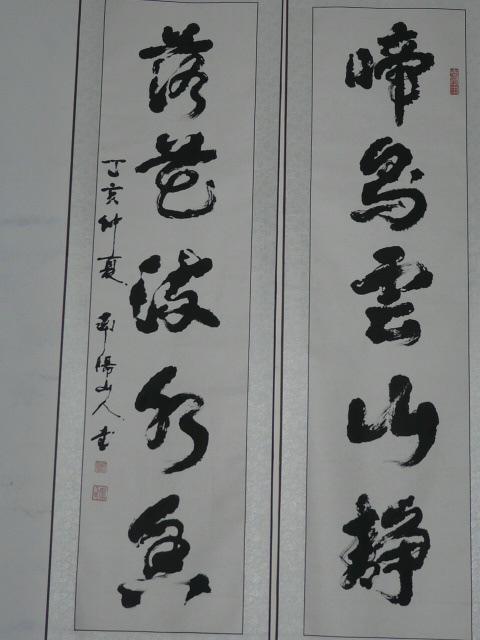 啼鳥雲山靜
落花溪水香
丁亥仲夏 南陽山人書